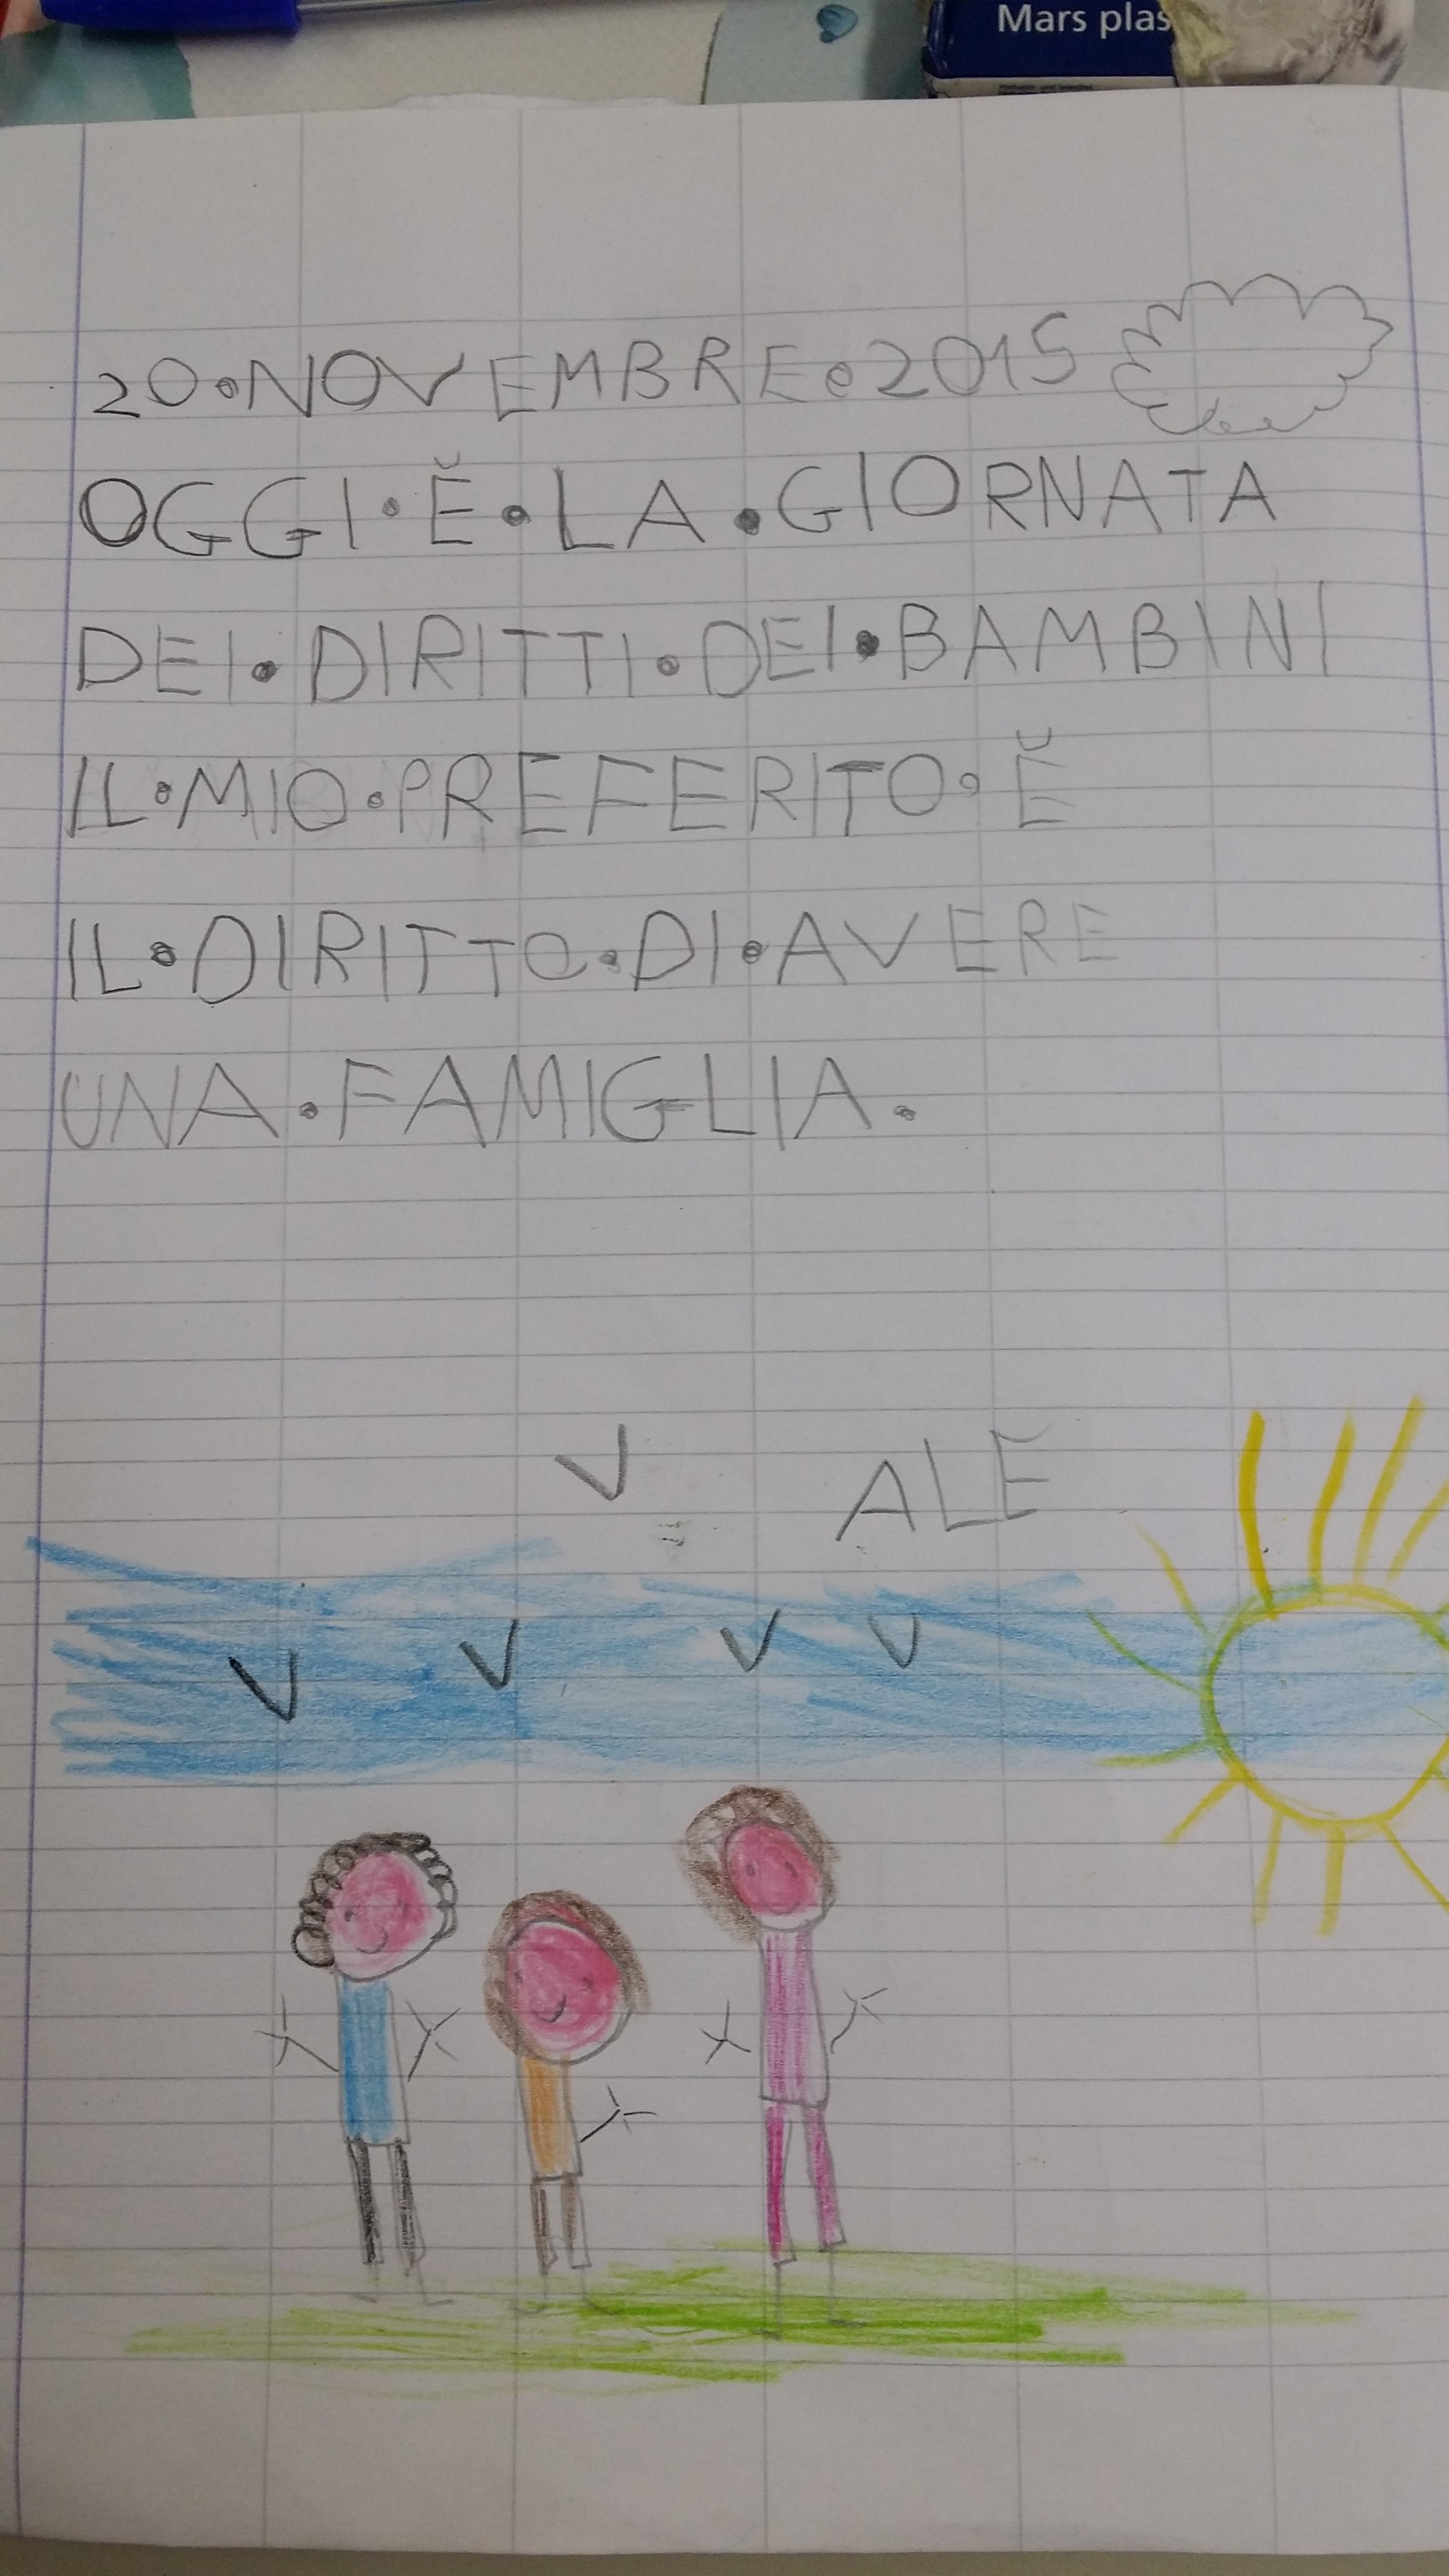 Mars plas
20•NOVEMBRE•2015
OGGI•Ĕ•LA•GIORNATA
DEI•DIRITTI•DEI•BAMBINI
IL•MIO•PREFERITO•Ĕ
IL•DIRITTO•DI•AVERE
UNA•FAMIGLIA.
ALE